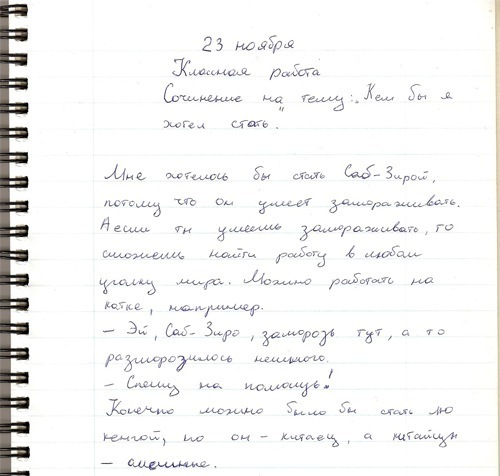 23 ноября
Класная работа
Сочинение на тему: „Кем бы я
хотел стать.
Мне хотелось бы стать Саб-Зирой,
потому что он умеет замораживать.
А если ты умеешь замораживать, то
сможешь найти работу в любом
уголку мира. Можно работать на
катке, например.
– Эй, Саб-Зиро, заморозь тут, а то
разморозилось немного.
– Спешу на помощь!
Конечно можно было бы стать лю
кенгой, но он – китаец, а китайцы
–